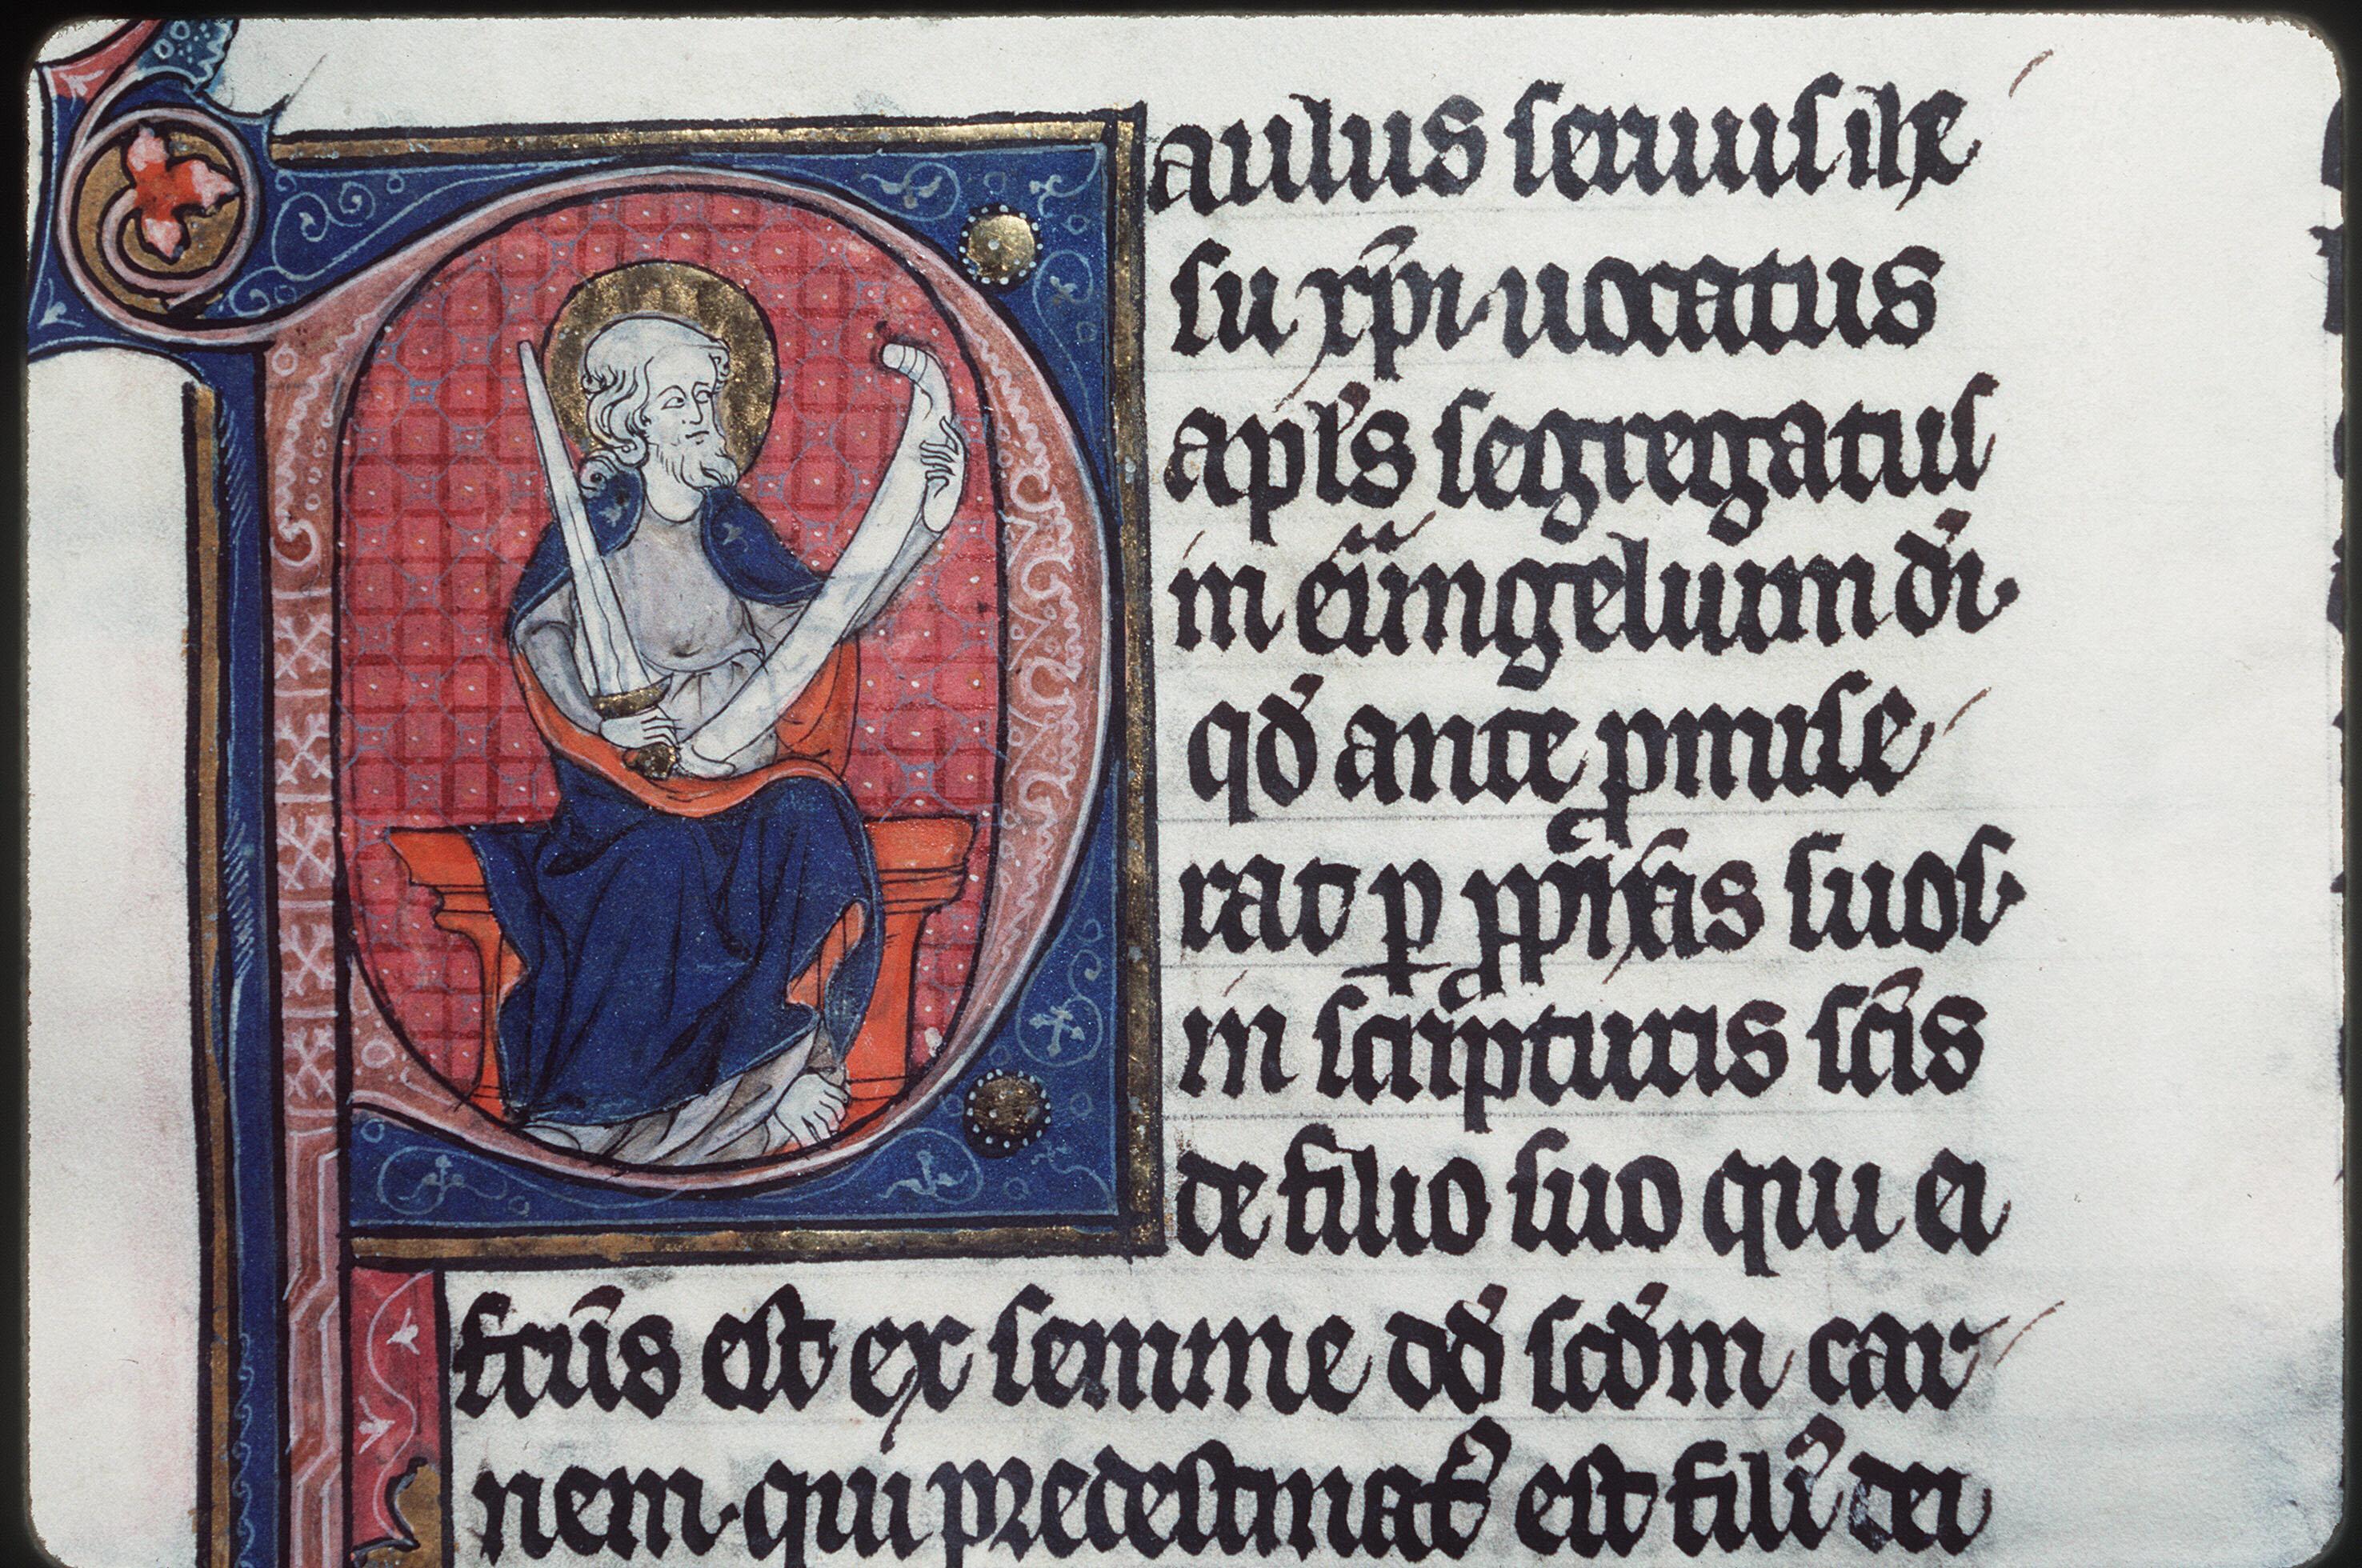 Paulus seruus ihe
su xp̄i uocatus
apl's segregatus
in euu̅ngelium di
qd ante ꝓmise
rat ꝑ ꝓph̅as suos
in scripturis scis
de filio suo qui ei
fcu̅s est ex semine dd scdm car
nem qui predestinat᷒ est fili᷒ dei